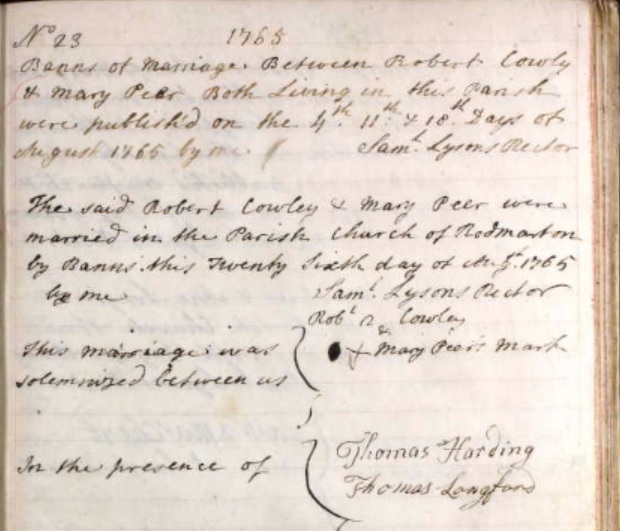 No 23 1765
Banns of Marriage Between Robert Cowly
& Mary Peer Both Living in this Parish
were publish'd on the 4th. 11th. & 18th. Days of
August 1765 by me. Saml. Lysons Rector
The said Robert Cowley & Mary Peer were
married in the Parish Church of Rodmarton
by Banns this Twenty Sixth day of Aug. 1765
by me Saml. Lysons Rector
Robt Cowley
&
This marriage was Mary Peers Mark
solemnized between us
In the presence of Thomas Harding
Thomas Langford